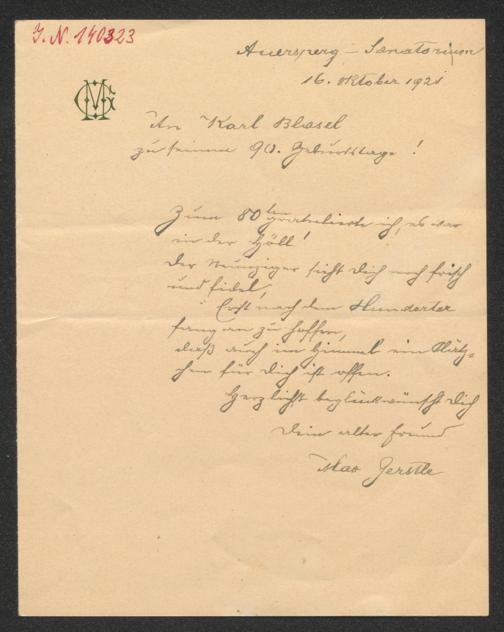 J. N. 140323
Auersperg-Sanatorium
16. Oktober 1921
MG
An Karl Blasel
zu seinem 90. Geburtstage!
Zum 80ten gratulierte ich, es war
in der Höll!
Der Neunziger sieht Dich noch frisch
und fidel,
Erst nach dem Hunderter
fang an zu hoffen,
daß auch im Himmel ein Plätz-
chen für Dich ist offen.
Herzlichst beglückwünscht Dich
Dein alter Freund